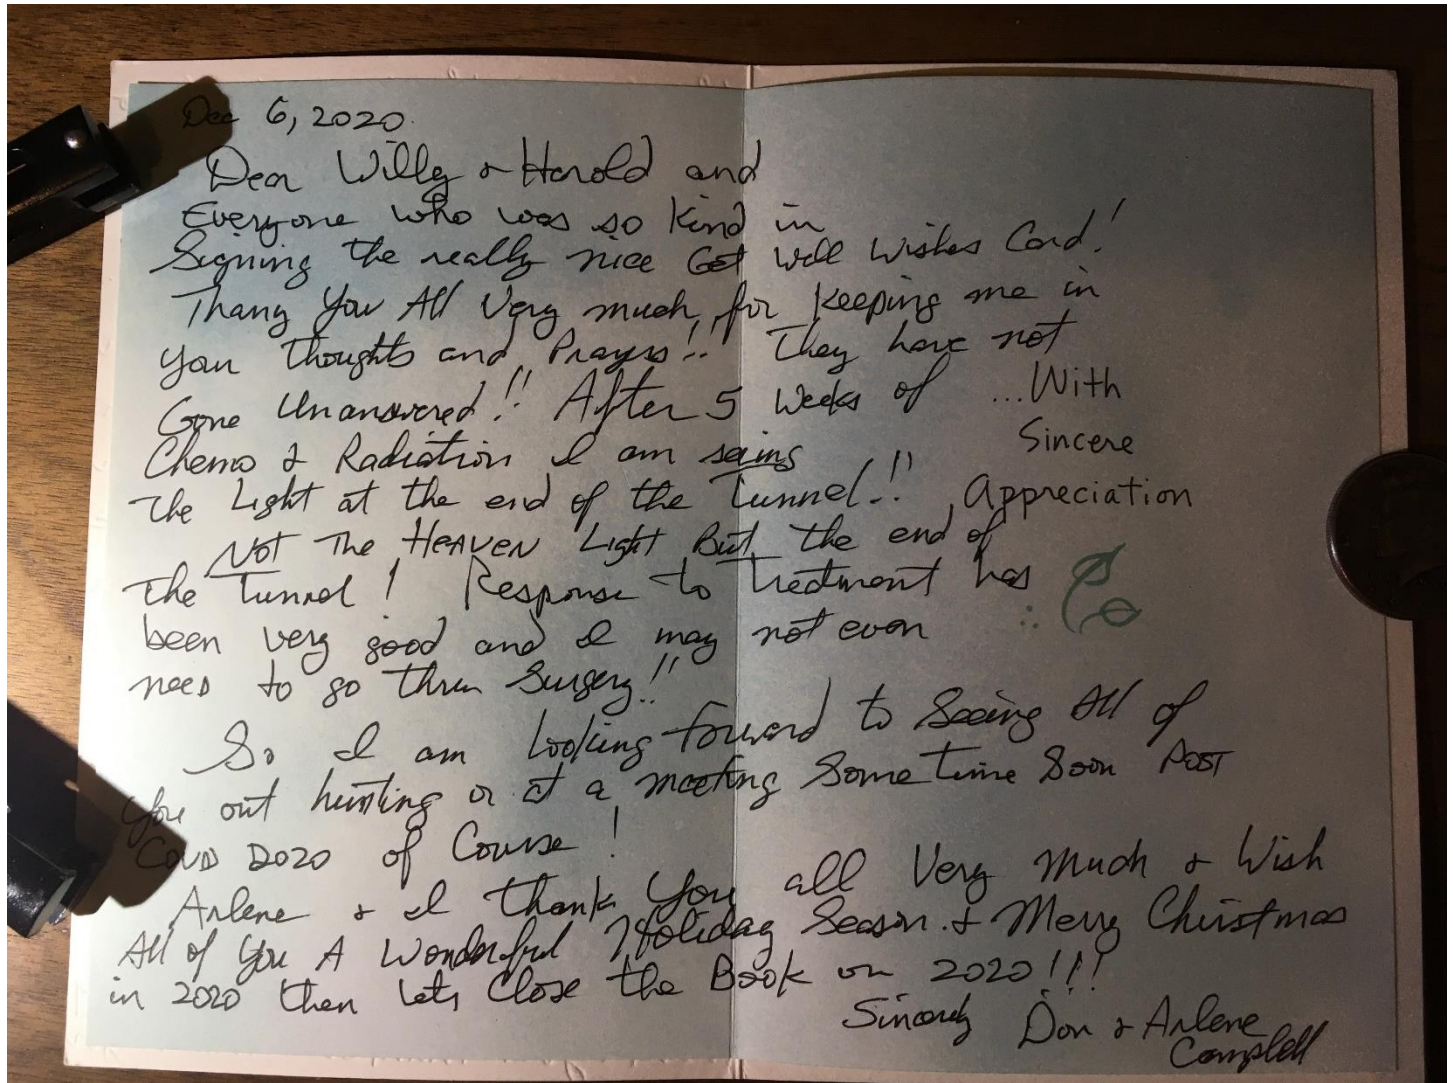 Dec 6, 2020.
Dear Willy & Harold and
Everyone who was so Kind in
Signing the really nice Get Well Wishes Card!
Thang You All Very much, for Keeping me in
your Thoughts and Prayers!! They have not
Gone Unanswered!! After 5 Weeks of
Chemo & Radiation I am seeing
The Light at the end of the Tunnel!!
...With
Sincere
Appreciation
NOT The HEAVEN Light But the end of
The Tunnel! Response to Treatment has
been very good and I may not even
need to go thru Surgery!!
So I am looking forward to Seeing All of
You out hunting or at a meeting Sometime Soon POST
COVID 2020 of Course!
Arlene & I thank You all Very Much & Wish
All of You A Wonderful Holiday Season & Merry Christmas
in 2020 then Lets Close the Book on 2020!!!
Sincerely Don & Arlene
Campbell